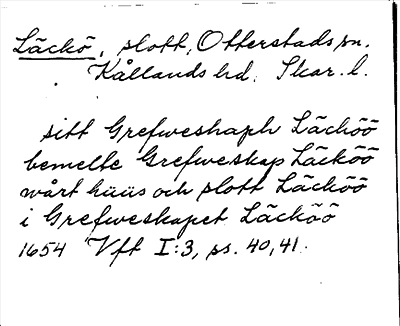 Läckö, slott, Otterstads sn.
Kållands hd. Skar. l.
sitt Grefweshaph Läcköö
bemelte Grefweskap Läcköö
wårt hüüs och slott Läcköö
i Grefweskapet Läcköö
1654 Vft I:3, ss. 40, 41.